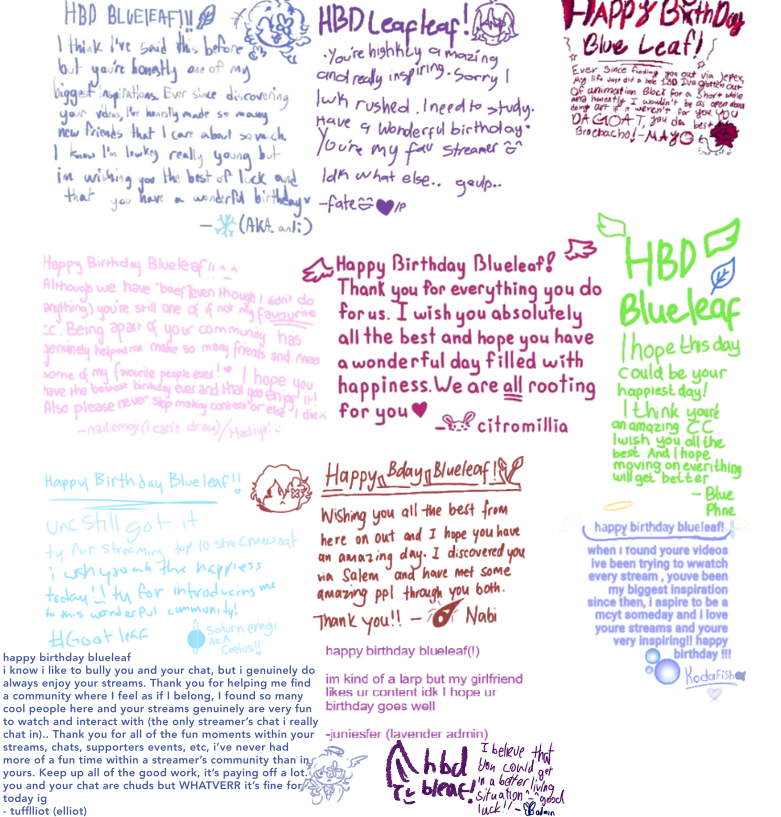 HBD BLUELEAF!!!
I think I've said this before
but you're honestly one of my
biggest inspirations. Ever since discovering
your videos, I've honestly made so many
new friends that I care about so much
I know I'm lowkey really young but
im wishing you the best of luck and
that you have a wonderful birthday
- (AKA. anli)
HBD Leafleaf!
You're highkey amazing
and really inspiring. Sorry I
lwk rushed. I need to study.
Have a wonderful birthday
You're my fav streamer
Idk what else.. gulp..
-fate /P
HAPPY BirthDay
Blue Leaf!
Ever Since finding you out via Jerex,
my life just did a hole 180. I've gotten out
of animation Block for a short while
and honestly I wouldn't be as open about
doing art if it weren't for you. YOU
DA GOAT, you da best
Brochacho! - MAYO
Happy Birthday Blueleaf!! ^^
Although we have "beef" (even though I didn't do
anything) you're still one of if not my favourite
CC. Being apart of your community has
genuinely helped me make so many friends and meet
some of my favourite people ever! I hope you
have the bestest birthday ever and that you enjoy it!
Also please never stop making content or else I die
-nail emoji (I can't draw) / Hadiya
Happy Birthday Blueleaf!
Thank you for everything you do
for us. I wish you absolutely
all the best and hope you have
a wonderful day filled with
happiness. We are all rooting
for you ♥
- citromillia
HBD
Blueleaf
I hope this day
could be your
happiest day!
I think you're
an amazing CC
I wish you all the
best. And I hope
moving on everithing
will get better
- Blue
Phne
Happy Birthday Blueleaf!!
unc still got it
ty for streaming top 10 streamer goat
i wish you all the happiness
today!! ty for introducing me
to this wonderful community!
#Goatleaf
saturn eregi
AKA
Caelus!!
Happy Bday Blueleaf!
Wishing you all the best from
here on out and I hope you have
an amazing day. I discovered you
via Salem and have met some
amazing ppl through you both.
Thank you!! - Nabi
happy birthday blueleaf!
when i found youre videos
ive been trying to wwatch
every stream , youve been
my biggest inspiration
since then, i aspire to be a
mcyt someday and i love
youre streams and youre
very inspiring!! happy
birthday !!!
KodaFish
happy birthday blueleaf
i know i like to bully you and your chat, but i genuinely do
always enjoy your streams. Thank you for helping me find
a community where I feel as if I belong, I found so many
cool people here and your streams genuinely are very fun
to watch and interact with (the only streamer's chat i really
chat in).. Thank you for all of the fun moments within your
streams, chats, supporters events, etc, i've never had
more of a fun time within a streamer's community than in
yours. Keep up all of the good work, it's paying off a lot.
you and your chat are chuds but WHATVERR it's fine for
today ig
- tuffliot (elliot)
happy birthday blueleaf(!)
im kind of a larp but my girlfriend
likes ur content idk I hope ur
birthday goes well
-juniesfer (lavender admin)
hbd
bleaf!
I believe that
you could get
in a better living
situation ^^ good
luck!!